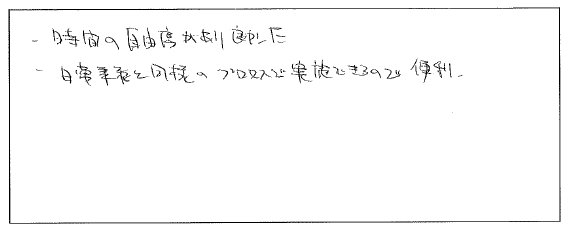 - 時間の自由度があり良かった
- 日常業務と同様のプロセスで実施できるので便利.